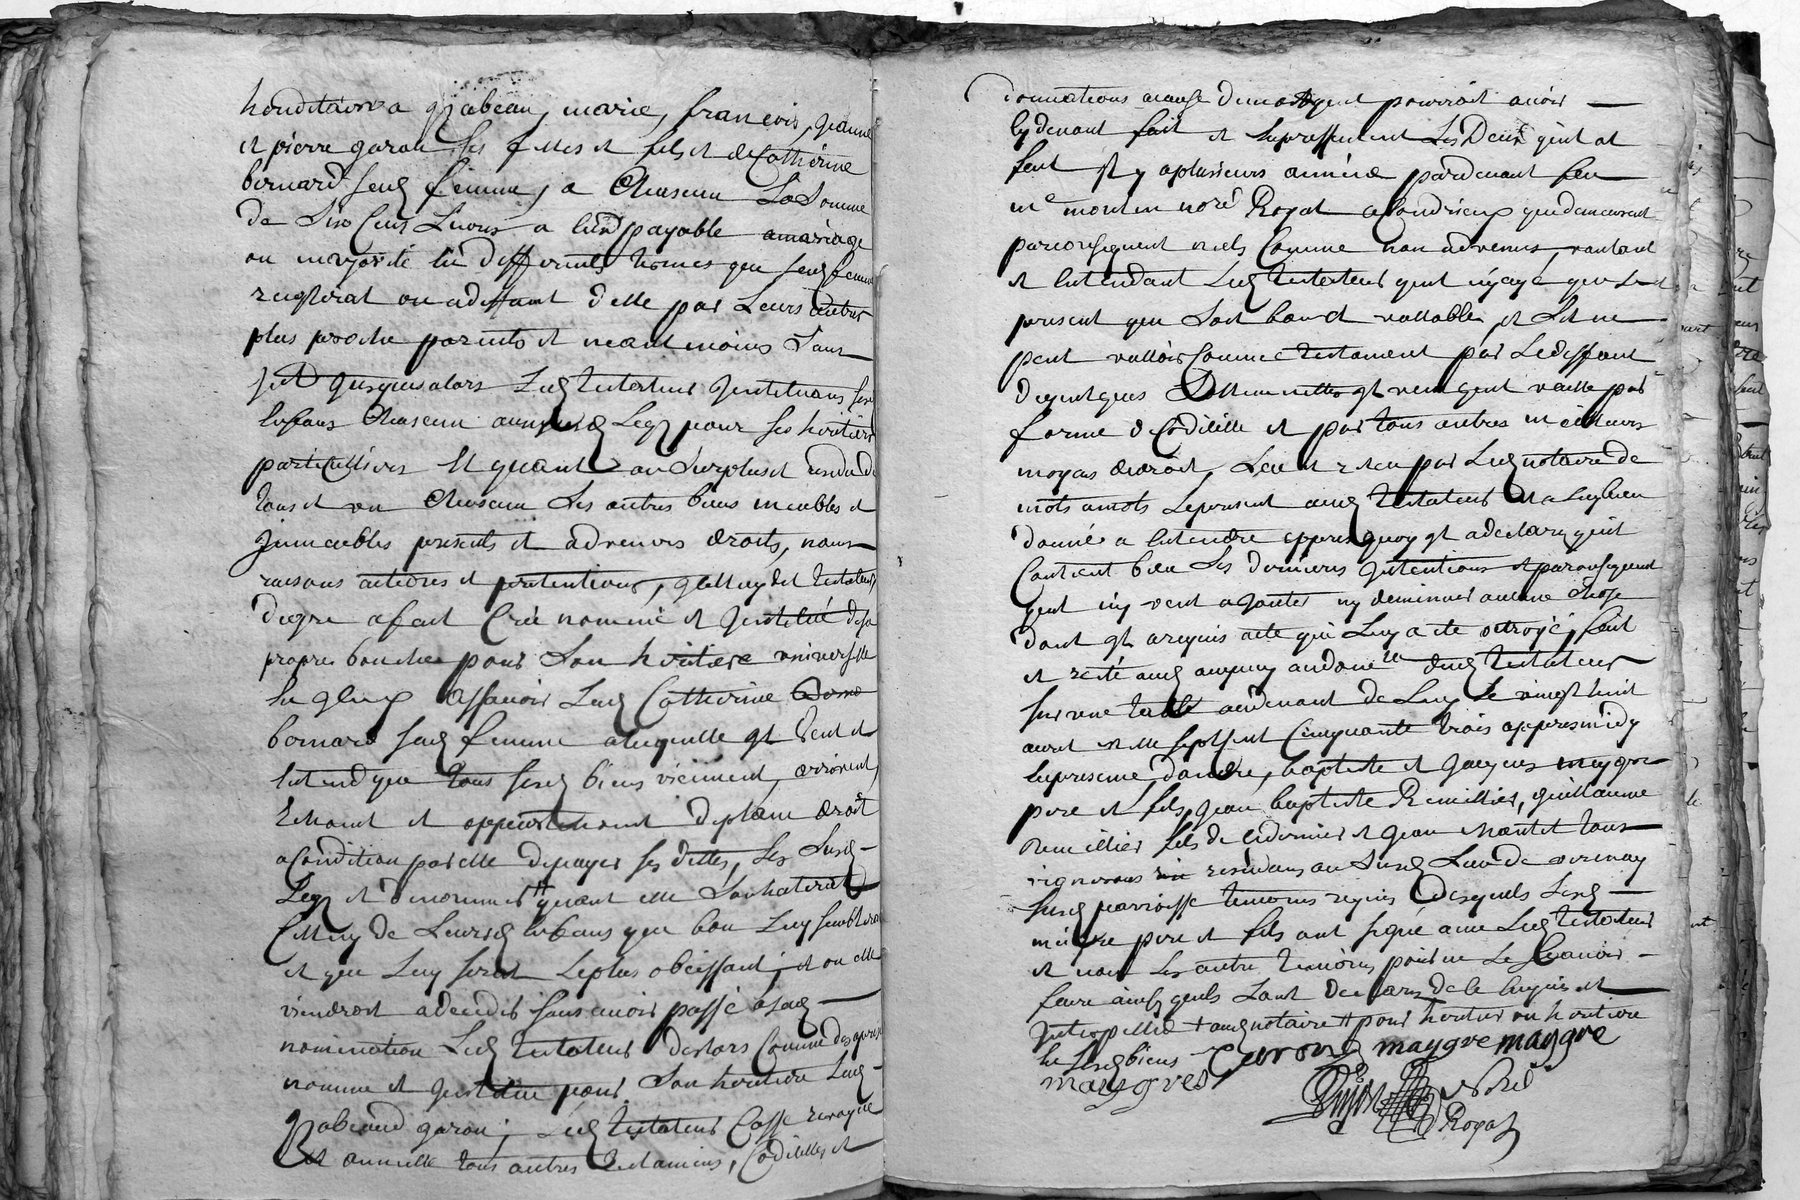 hereditaire a Izabeau, marie, francois, jeanne
et pierre garon ses filles et fils et de Catherine
bernard sad femme, a Chascun La Somme
de Six Cens Livres a lund payable a mariage
ou majorité en differents termes que sad femme
reglerat ou a deffaut delle par Leurs autres
plus proche parents et neantmoins Sans
jusques alors Led testateur Instituant sesd
Enfans Chascun aud Legz pour ses heritiers
particulliers Et quant au Surplus et residu de
tous et un Chascun Ses autres biens meubles et
Immeubles presents et advenirs droits, noms
raisons actions et pretentions, Iceluy dit testateur
degre a fait Crée nommé et Institué de sa
propre bouche pour Son heritiere universelle
assavoir Lad Catherine
bernard sad femme a laquelle Il veut et
Entend que tous sesd biens viennent, arrivent,
Echeent et appartiennent de plain droit
a Condition par elle de payer ses dettes, Les Susd
Legz et de nommer # quant elle Souhaterat
Celluy de Leursd Enfans que bon Luy semblera
et que Luy serat Le plus obeissant; et ou elle
viendroit a deceder sans avoir passé lad
nomination Led testateur deslors Comme des apresent
nomme et Institue pour Son heritiere Lad
Izabeaud garon; Led testateur Casse revoque
et annulle tous autres testamens, Codicilles, et
donnations a cause de mort quil pourroit avoir
Cy devant fait et Expressement Les Deux quil at
fait Il y a plusieurs années pardevant feu
me morten nore Royal a Condrieux qui demeurent
par consequent nuls Comme non advenus, voulant
et Entendant Led testateur quil ny aye que Le
present que Soit bon et vallable, et Sil ne
peut valloir Comme testament par Le deffaut
de quelques Il veut quil vaille par
forme de Codicille et par tous autres meilleurs
moyens de droit, Leu et releu par Led notaire de
mots a mots Le present aud testateur et a Luy bien
donné a Entendre appres quoy Il a declaré quil
Contient bien Ses dernieres Intentions et par consequent
quil ny veut ajouter ny diminuer aucune chose
dont Il a requis acte qui Luy a ete octroyé, fait
et recité aud ampuy au domlle dud testateur
sur une table au devant de Luy Le vingt huit
avril mille sept sent Cinquante trois appres midy
En presence d'andré, baptiste et Jacques maygre
pere et fils, Jean baptiste Remillier, guillaume
Remillier fils de ce dernier et Jean tous
vignerons residans au Susd Lieu de verenay
susd parroisse temoins requis Desquels Lesd
meigre pere et fils ont signé avec Led testateur
et non Les autre temoins pour ne Le Scavoir
faire ainsy quils Lont declaré de ce Enquis et
Interpellés + aud notaire # pour heritier ou heritiere
de sesd biens Garon maygre maygre
maygres
nore
Royal